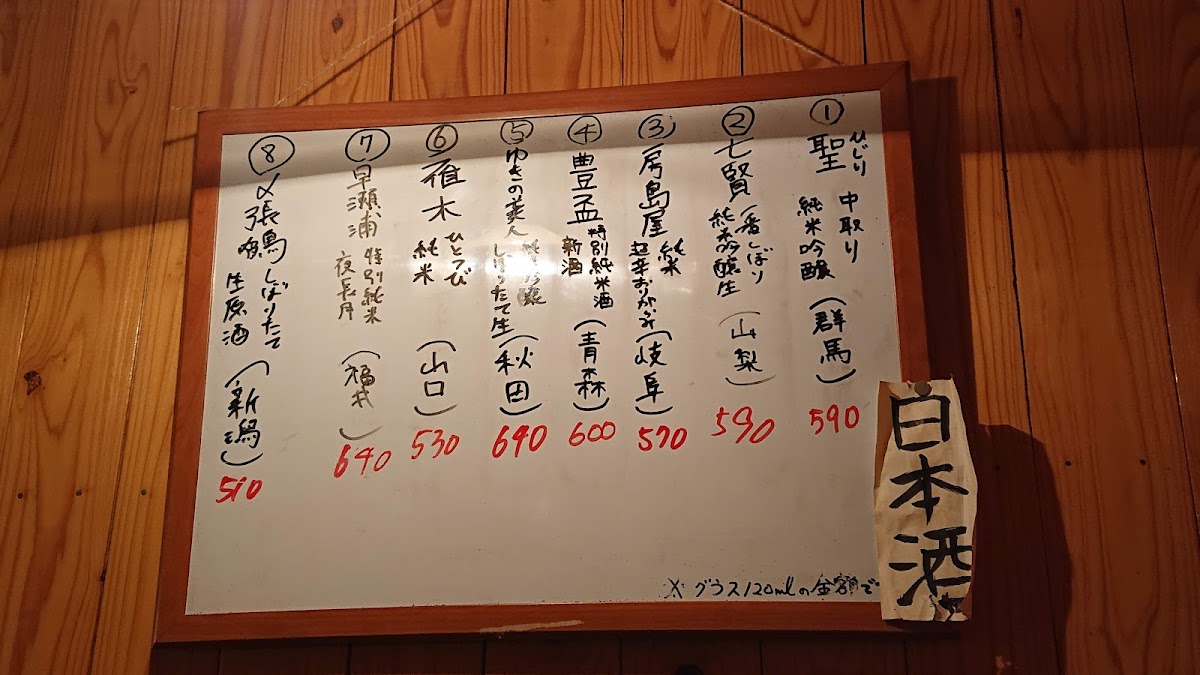 ① 聖 ひじり
中取り
純米吟醸
(群馬)
590
② 七賢
一番しぼり
純米吟醸生
(山梨)
590
③ 房島屋
純米
超辛おりがらみ
(岐阜)
570
④ 豊盃
特別純米酒
新酒
(青森)
600
⑤ ゆきの美人
純米吟醸
しぼりたて生
(秋田)
640
⑥ 雁木
ひとつび
純米
(山口)
530
⑦ 早瀬浦
特別純米
夜長月
(福井)
640
⑧ 〆張鶴
しぼりたて
生原酒
(新潟)
510
※ グラス120mlの金額で
日本酒